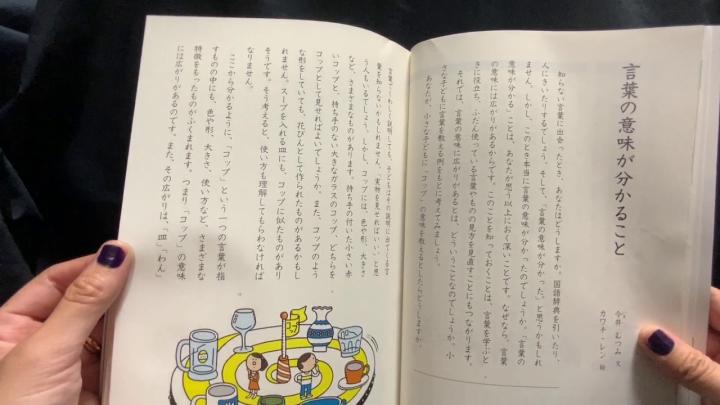 言葉の意味が分かること
今井むつみ 文
カワチ・レン 絵
知らない言葉に出会ったとき、あなたはどうしますか。国語辞典を引いたり、
人にきいたりするでしょう。そして、「言葉の意味が分かった」と思うかもしれ
ません。しかし、このとき本当に言葉の意味が分かったのでしょうか。「言葉の
意味が分かる」ことは、あなたが思う以上におく深いことです。なぜなら、言葉
の意味には広がりがあるからです。このことを知っておくことは、言葉を学ぶと
きに役立ち、ふだん使っている言葉やものの見方を見直すことにもつながります。
それでは、言葉の意味に広がりがあるとは、どういうことなのでしょうか。小
さな子どもに言葉を教える例をもとに考えてみましょう。
あなたが、小さな子どもに「コップ」の意味を教えるとしたらどうしますか。
言葉でくわしく説明しても、子どもはその説明に出てくる言
葉を知らないかもしれません。「実物を見せればいい。」と思
う人もいるでしょう。しかし、コップには、色や形、大きさ
など、さまざまなものがあります。持ち手の付いた小さい赤
いコップと、持ち手のない大きなガラスのコップ、どちらを
コップとして見せればよいでしょうか。また、コップのよう
な形をしていても、花びんとして作られたものがあるかもし
れません。スープを入れる皿にも、コップに似たものがあり
そうです。そう考えると、使い方も理解してもらわなければ
なりません。
ここから分かるように、「コップ」という一つの言葉が指
すものの中にも、色や形、大きさ、使い方など、さまざまな
特徴をもったものがふくまれます。つまり「コップ」の意味
には広がりがあるのです。また、その広がりは、「皿」「わん」